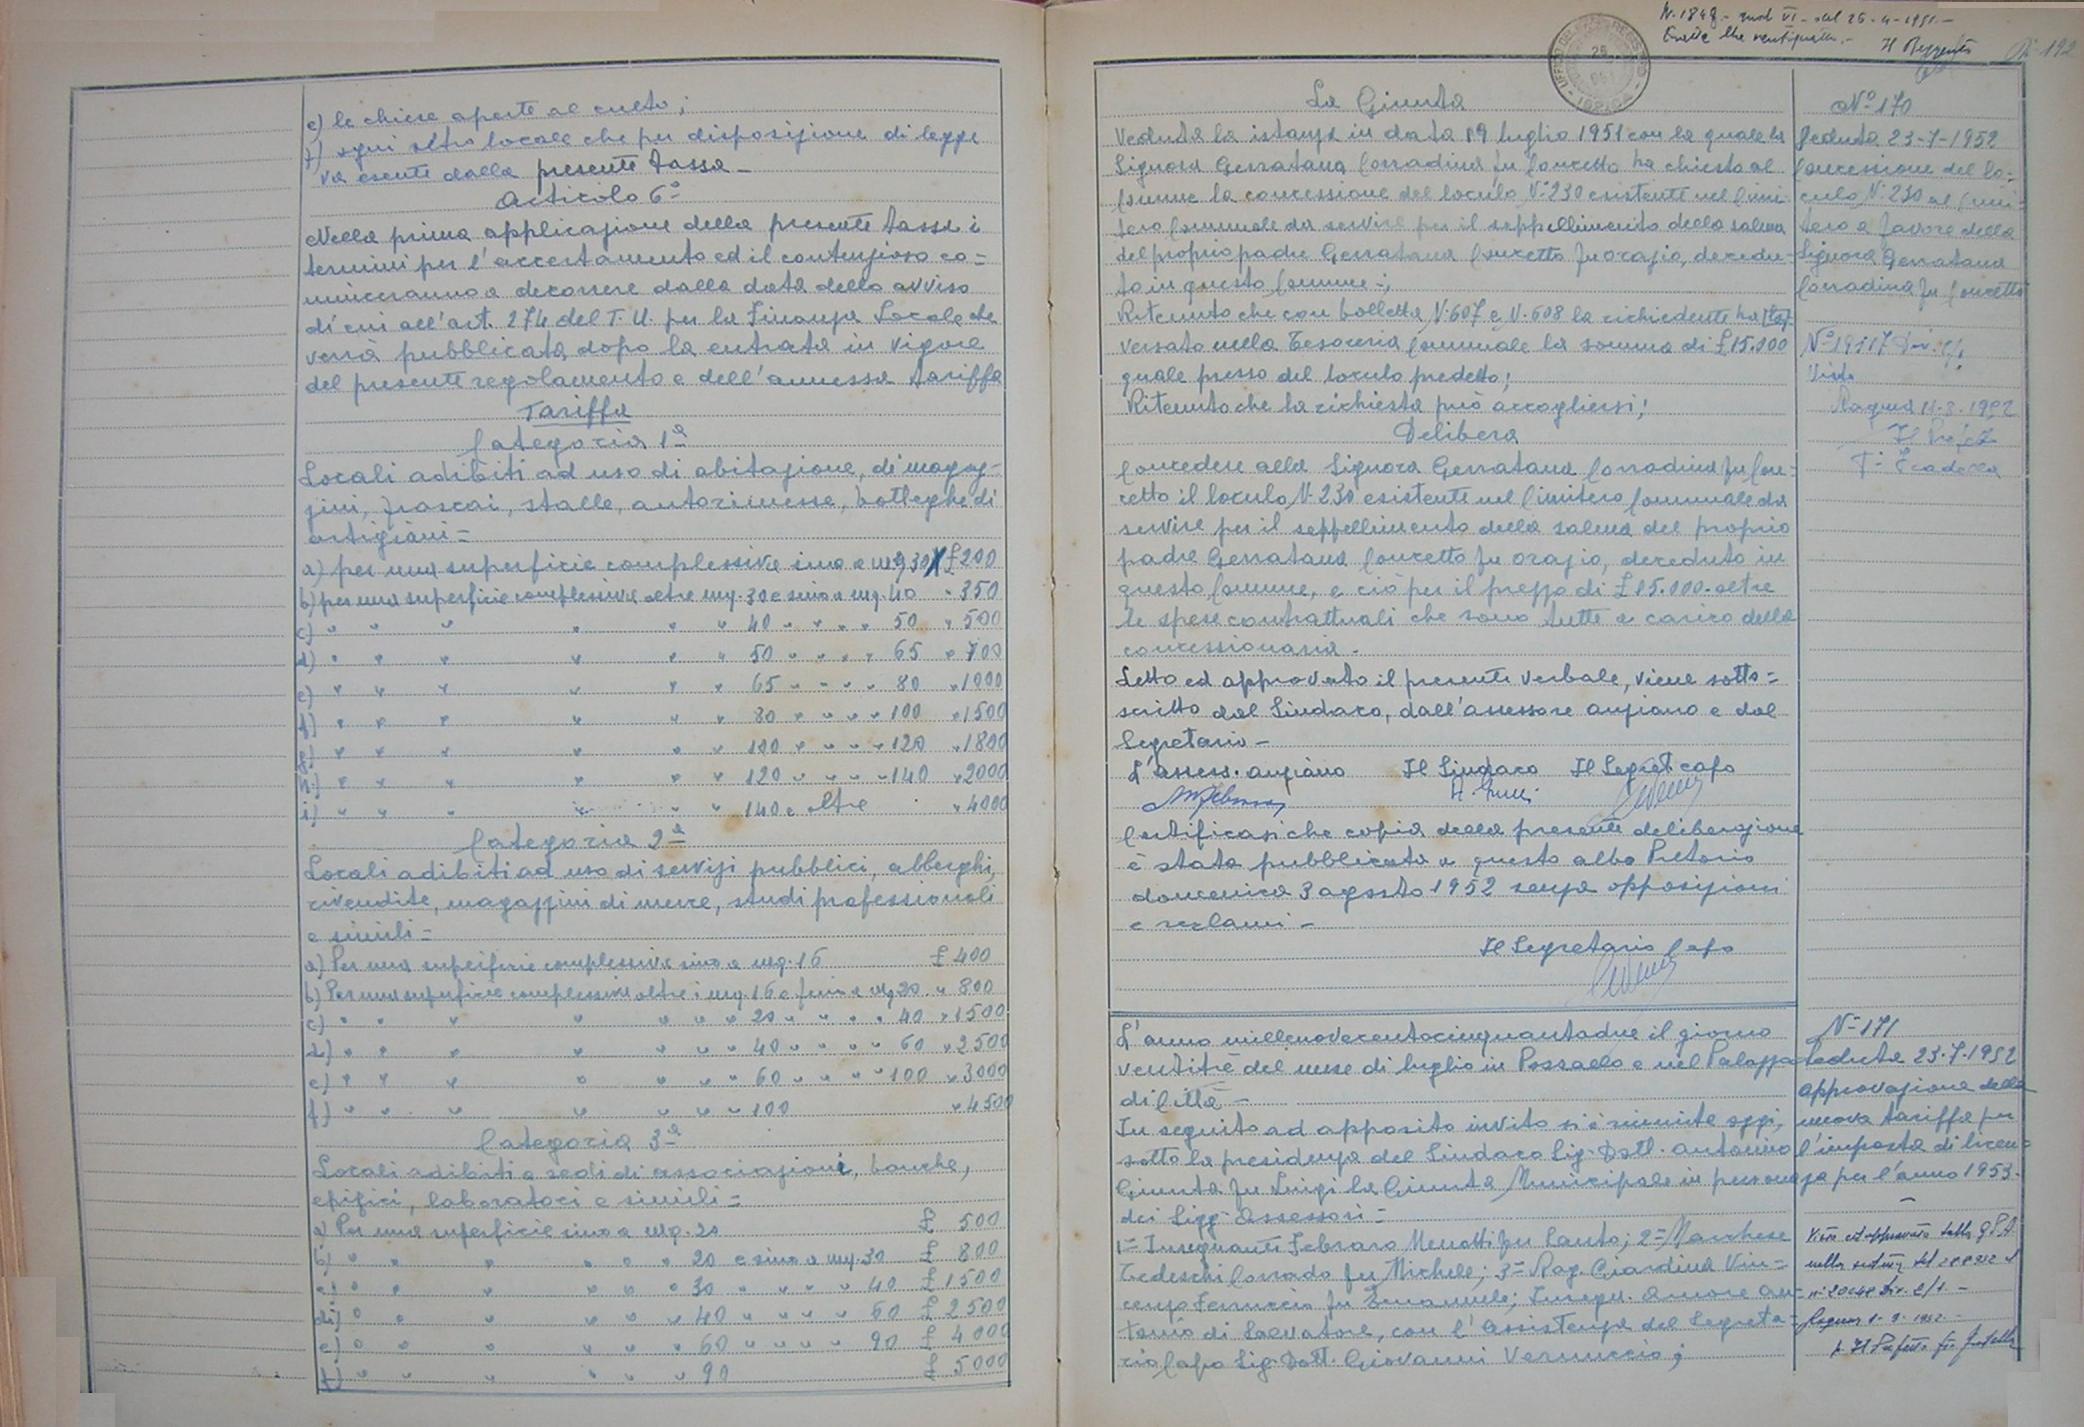 e) le chiese aperte al culto;
f) ogni altro locale che per disposizione di legge
va esente dalla presente tassa -
Articolo 6°
Nella prima applicazione della presente tassa i
termini per l'accertamento ed il contenzioso co=
minceranno a decorrere dalla data dello avviso
di cui all'art. 274 del T.U. per la Finanza Locale che
verrà pubblicata dopo la entrata in vigore
del presente regolamento e dell'annessa tariffa
Tariffa
Categoria 1ª
Locali adibiti ad uso di abitazione, di magaz-
zini, frascai, stalle, autorimesse, botteghe di
artigiani =
a) per una superficie complessiva sino a mq 30 £ 200
b) per una superficie complessiva oltre mq. 30 e sino a mq. 40 " 350
c) " " " " " " 40 " " " " 50 " 500
d) " " " " " " 50 " " " " 65 " 700
e) " " " " " " 65 " " " " 80 " 1000
f) " " " " " " 80 " " " " 100 " 1500
g) " " " " " " 100 " " " " 120 " 1800
h) " " " " " " 120 " " " " 140 " 2000
i) " " " " " " 140 e oltre " 4000
Categoria 2ª
Locali adibiti ad uso di servizi pubblici, alberghi,
rivendite, magazzini di merce, studi professionali
e simili =
a) Per una superficie complessiva sino a mq. 16 £ 400
b) Per una superficie complessiva oltre i mq. 16 e fino a mq 20 " 800
c) " " " " " " " 20 " " " " 40 " 1500
d) " " " " " " " 40 " " " " 60 " 2500
e) " " " " " " " 60 " " " " 100 " 3000
f) " " " " " " " 100 " 4500
Categoria 3ª
Locali adibiti a sedi di associazioni, banche,
opifici, laboratori e simili =
a) Per una superficie sino a mq. 20 £ 500
b) " " " " " " 20 e sino a mq. 30 £ 800
c) " " " " " " 30 " " " " 40 £ 1500
d) " " " " " " 40 " " " " 60 £ 2500
e) " " " " " " 60 " " " " 90 £ 4000
f) " " " " " " 90 £ 5000
N. 1848 - mod VI - del 26-4-1951 -
Il Reggente
192
La Giunta
Veduta la istanza in data 19 luglio 1951 con la quale la
Signora Gerratana Corradina fu Concetto ha chiesto al
Comune la concessione del loculo N° 230 esistente nel Cimi-
tero Comunale da servire per il seppellimento della salma
del proprio padre Gerratana Concetto fu Orazio, decedu-
to in questo Comune;
Ritenuto che con bolletta N. 607 e N. 608 la richiedente ha
versato nella Tesoreria Comunale la somma di £ 15.000
quale prezzo del loculo predetto;
Ritenuto che la richiesta può accogliersi;
Delibera
Concedere alla Signora Gerratana Corradina fu Con-
cetto il loculo N. 230 esistente nel Cimitero Comunale da
servire per il seppellimento della salma del proprio
padre Gerratana Concetto fu Orazio, deceduto in
questo Comune, e ciò per il prezzo di £ 15.000 - oltre
le spese contrattuali che sono tutte a carico della
concessionaria.
Letto ed approvato il presente verbale, viene sotto=
scritto dal Sindaco, dall'assessore anziano e dal
Segretario -
L'assess. anziano Il Sindaco Il Segret capo
Certificasi che copia della presente deliberazione
è stata pubblicata a questo albo Pretorio
domenica 3 agosto 1952 senza opposizioni
e reclami -
Il Segretario Capo
N° 170
Seduta 23-7-1952
Concessione del lo=
culo N. 230 al Cimi-
tero a favore della
Signora Gerratana
Corradina fu Concetto
Visto
Il Prefetto
L'anno millenovecentocinquantadue il giorno
ventitré del mese di luglio in Pozzallo e nel Palazzo
di Città -
In seguito ad apposito invito si è riunita oggi,
sotto la presidenza del Sindaco Sig. Dott. Antonino
Giunta fu Luigi la Giunta Municipale in persona
dei Sigg. Assessori =
1= Insegnante Febraro Menotti fu Santo; 2= Marchese
Tedeschi Corrado fu Michele; 3= Rag. Giardina Vin=
cenzo Ferruccio fu Emanuele; Insegn. Amore An=
tonio di Salvatore, con l'assistenza del Segreta-
rio Capo Sig. Dott. Giovanni Vernuccio;
N= 171
Seduta 23-7-1952
approvazione della
nuova tariffa per
l'imposta di licen=
za per l'anno 1953.
Visto ed approvato dalla G.P.A.